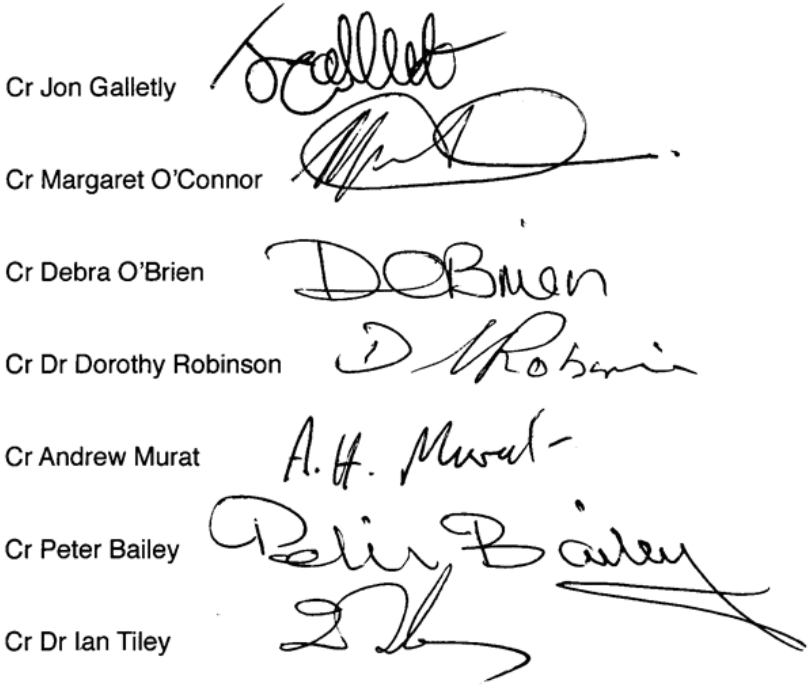 Cr Jon Galletly
Cr Margaret O'Connor
Cr Debra O'Brien DOBrien
Cr Dr Dorothy Robinson
Cr Andrew Murat A.H. Murat
Cr Peter Bailey Peter Bailey
Cr Dr Ian Tiley